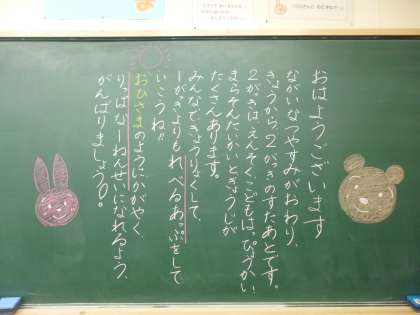 おはようございます
ながいなつやすみがおわり、
きょうから、2がっきのすたあとです。
2がっきは、えんそく、こどもはっぴょうかい、
まらそんたいかいときょうじが
たくさんあります。
みんなできょうりょくして、
1がっきよりもれべるあっぷをして
いこうね!!
おひさまのようにかがやく、
りっぱな一ねんせいになれるよう、
がんばりましょう。